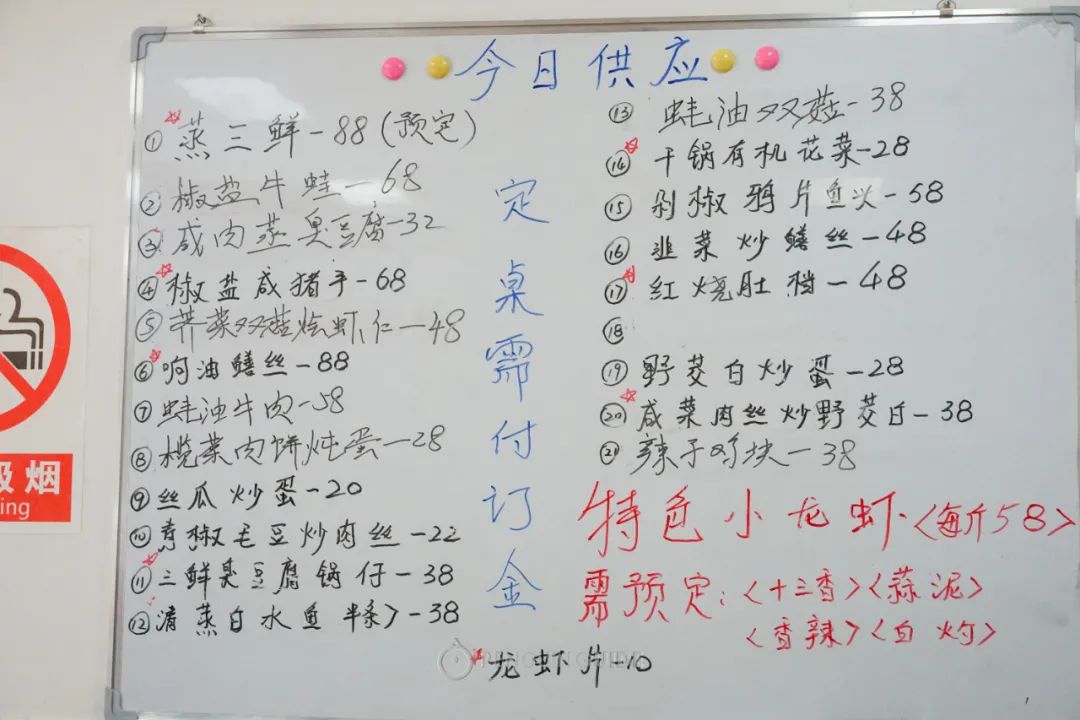 今日供应
① 蒸三鲜-88(预定)
② 椒盐牛蛙-68
③ 咸肉蒸臭豆腐-32
④ 椒盐咸猪手-68
⑤ 荠菜双菇烩虾仁-48
⑥ 响油鳝丝-88
⑦ 蚝油牛肉-58
⑧ 榄菜肉饼炖蛋-28
⑨ 丝瓜炒蛋-20
⑩ 青椒毛豆炒肉丝-22
⑪ 三鲜臭豆腐锅仔-38
⑫ 清蒸白水鱼半条〉-38
定桌需付订金
⑬ 蚝油双菇-38
⑭ 干锅有机花菜-28
⑮ 剁椒鸦片鱼头-58
⑯ 韭菜炒鳝丝-48
⑰ 红烧肚档-48
⑱
⑲ 野茭白炒蛋-28
⑳ 咸菜肉丝炒野茭白-38
㉑ 辣子鸡块-38
特色小龙虾〈每斤58〉
需预定:〈十三香〉〈蒜泥〉
〈香辣〉〈白灼〉
龙虾片-10
吸烟
ing